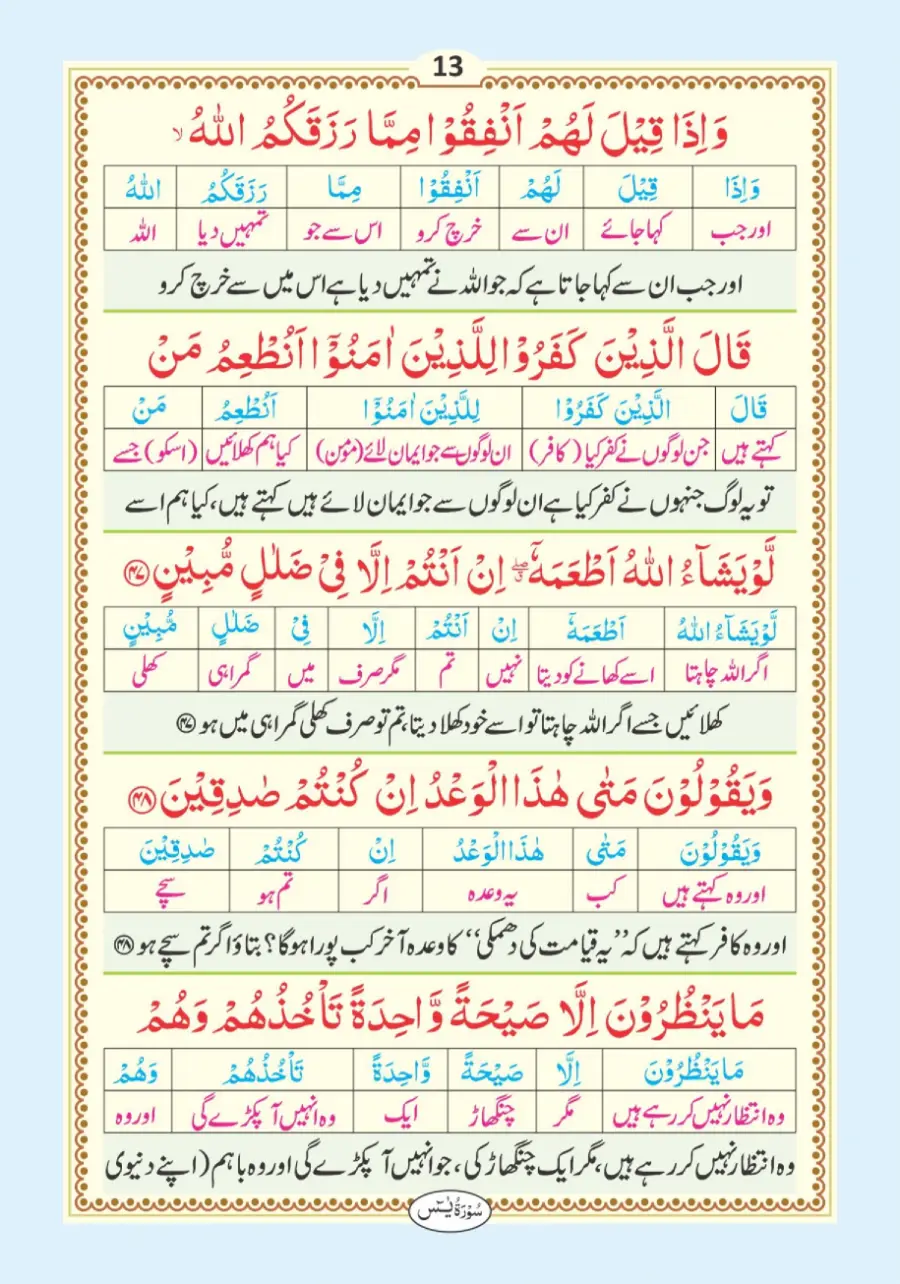 13
وَاِذَا قِيْلَ لَهُمْ اَنْفِقُوْا مِمَّا رَزَقَكُمُ اللّٰهُ ۙ
وَاِذَا قِيْلَ لَهُمْ اَنْفِقُوْا مِمَّا رَزَقَكُمُ اللّٰهُ
اور جب کہا جائے ان سے خرچ کرو اس سے جو تمہیں دیا اللہ
اور جب ان سے کہا جاتا ہے کہ جو اللہ نے تمہیں دیا ہے اس میں سے خرچ کرو
قَالَ الَّذِيْنَ كَفَرُوْا لِلَّذِيْنَ اٰمَنُوْٓا اَنُطْعِمُ مَنْ
قَالَ الَّذِيْنَ كَفَرُوْا لِلَّذِيْنَ اٰمَنُوْٓا اَنُطْعِمُ مَنْ
کہتے ہیں جن لوگوں نے کفر کیا (کافر) ان لوگوں سے جو ایمان لائے (مؤمن) کیا ہم کھلائیں (اسکو) جسے
تو یہ لوگ جنہوں نے کفر کیا ہے ان لوگوں سے جو ایمان لائے ہیں کہتے ہیں، کیا ہم اسے
لَّوْ يَشَآءُ اللّٰهُ اَطْعَمَهٗٓ ۖ اِنْ اَنْتُمْ اِلَّا فِيْ ضَلٰلٍ مُّبِيْنٍ ﴿۴۷﴾
لَّوْ يَشَآءُ اللّٰهُ اَطْعَمَهٗٓ اِنْ اَنْتُمْ اِلَّا فِيْ ضَلٰلٍ مُّبِيْنٍ
اگر اللہ چاہتا اسے کھانے کو دیتا نہیں تم مگر صرف میں گمراہی کھلی
کھلائیں جسے اگر اللہ چاہتا تو اسے خود کھلا دیتا، تم تو صرف کھلی گمراہی میں ہو ﴿۴۷﴾
وَيَقُوْلُوْنَ مَتٰى هٰذَا الْوَعْدُ اِنْ كُنْتُمْ صٰدِقِيْنَ ﴿۴۸﴾
وَيَقُوْلُوْنَ مَتٰى هٰذَا الْوَعْدُ اِنْ كُنْتُمْ صٰدِقِيْنَ
اور وہ کہتے ہیں کب یہ وعدہ اگر تم ہو سچے
اور وہ کافر کہتے ہیں کہ ”یہ قیامت کی دھمکی“ کا وعدہ آخر کب پورا ہوگا؟ بتاؤ اگر تم سچے ہو ﴿۴۸﴾
مَا يَنْظُرُوْنَ اِلَّا صَيْحَةً وَّاحِدَةً تَاْخُذُهُمْ وَهُمْ
مَا يَنْظُرُوْنَ اِلَّا صَيْحَةً وَّاحِدَةً تَاْخُذُهُمْ وَهُمْ
وہ انتظار نہیں کر رہے ہیں مگر چنگھاڑ ایک وہ انہیں آ پکڑے گی اور وہ
وہ انتظار نہیں کر رہے ہیں، مگر ایک چنگھاڑ کی، جو انہیں آ پکڑے گی اور وہ باہم (اپنے دنیوی
سُوْرَةُ يٰسٓ